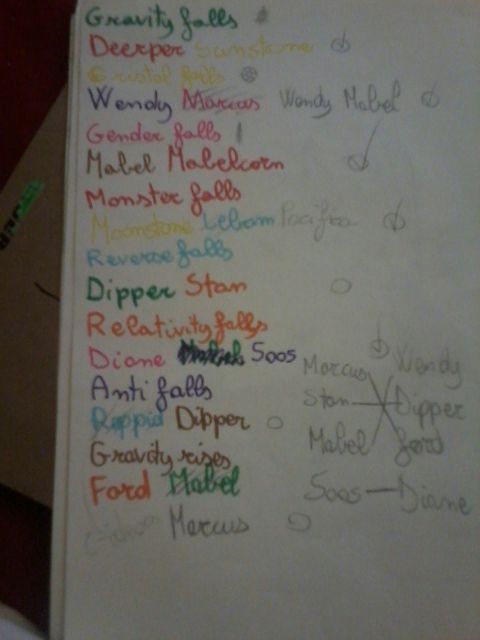 Gravity falls
Deerper Sunstone
Cristal falls
Wendy Marcus Wendy Mabel
Gender falls
Mabel Mabelcorn
Monster falls
Moonstone Leham Pacifica
Reverse falls
Dipper Stan
Relativity falls
Diane Soos
Marcus Wendy
Anti falls
Stan Dipper
Rappid Dipper
Mabel Ford
Gravity rises
Ford Mabel
Soos Diane
Marcus